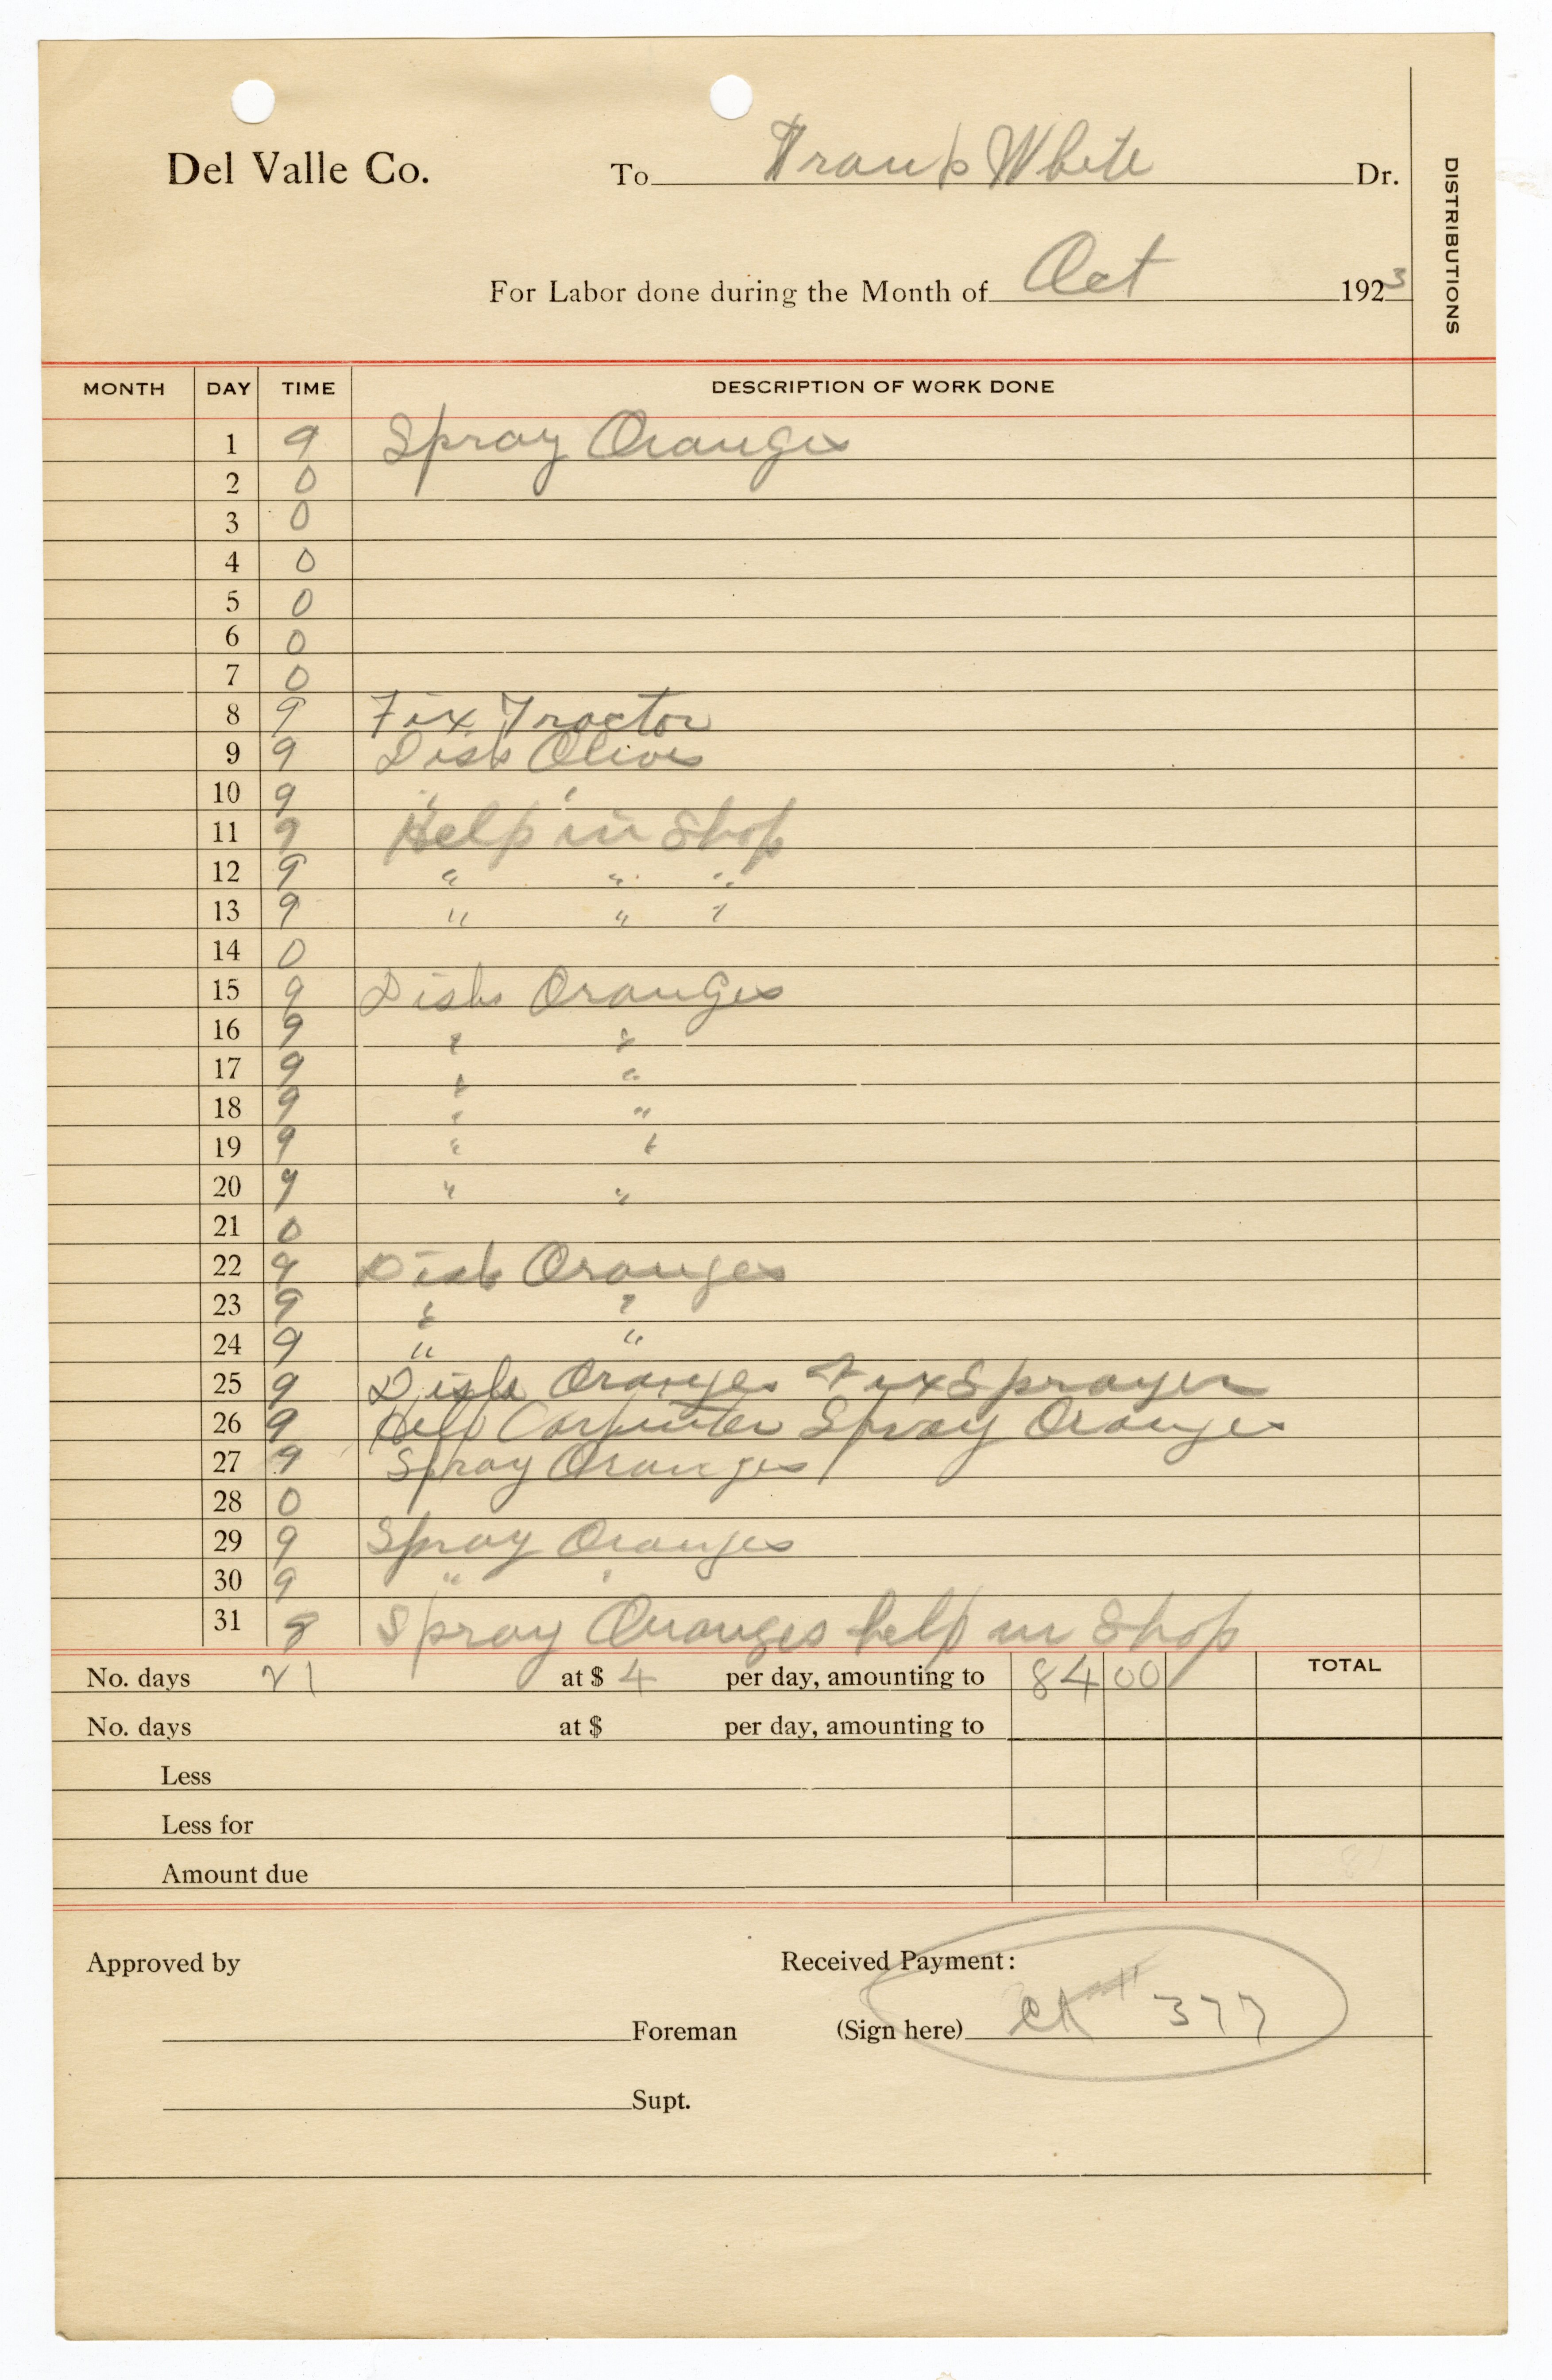 Del Valle Co. To Frank White Dr.
For Labor done during the Month of Oct 1923
DISTRIBUTIONS
MONTH DAY TIME DESCRIPTION OF WORK DONE
1 9 Spray Oranges
2 0
3 0
4 0
5 0
6 0
7 0
8 9 Fix Tractor
9 9 Disk Olives
10 9 " "
11 9 Help in Shop
12 9 " " "
13 9 " " "
14 0
15 9 Disk Oranges
16 9 " "
17 9 " "
18 9 " "
19 9 " "
20 9 " "
21 0
22 9 Disk Oranges
23 9 " "
24 9 " "
25 9 Disk Oranges Fix Sprayer
26 9 Help Carpenter Spray Oranges
27 9 Spray Oranges
28 0
29 9 Spray Oranges
30 9 " "
31 9 Spray Oranges help in Shop
No. days 21 at $ 4 per day, amounting to 84 00 TOTAL
No. days at $ per day, amounting to
Less
Less for
Amount due
Approved by Received Payment:
Foreman (Sign here) CK # 377
Supt.